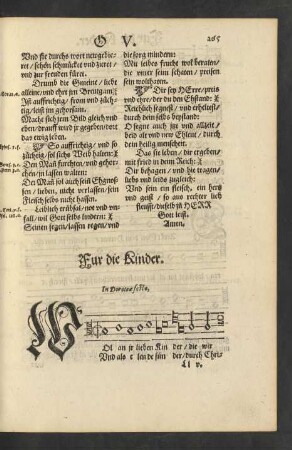 G V.
265
Vnd sie durchs wort new gebie-
ret / schön schmücket vnd zieret /
vnd zur freuden füret.
Drumb die Gmeine / liebt
alleine / vnd ehrt jhn
Ist auffrichtig / from vnd züch-
tig / lest jhm gehorsame.
Macht sich jrm Bild gleich vnd
eben / drauff wird jr gegeben / dort
das ewig leben.
So auffrichtig / vnd so
züchtig / sol sichs Weib halten:
Den Man fürchten / vnd gehor-
chen / jn lassen walten:
Der Man sol auch sein Ehgenos-
sen / lieben / nicht verlassen / sein
Fleisch selbs nicht hassen.
Leiblich trübsal / not vnd vn-
fall / wil Gott selbs lindern:
Seinen segen / lassen regen / vnd
die sorg mindern:
Mit leibes frucht wol beraten /
die vnter seim schaten / preisen
sein wolthaten.
Dir sey HErre / preis
vnd ehre / der du den Ehstand:
Reichlich segnest / vnd erhelest /
durch dein selbs beystand:
O segne auch jm vnd allzeit /
beid alt vnd new Ehleut / durch
dein heilig menscheit.
Das sie leben / dir ergeben /
mit fried in dem Reich:
Dir behagen / vnd die tragen /
liebs vnd leids zugleich:
Vnd sein ein fleisch, ein hertz
vnd geist / so aus rechter lieb
fleusst / dieselb jn HERR
Gott leist.
Amen.
Fur die Kinder.
In Dorewe solte,
WOl an jr lieben Kin der / die wir
Vnd als e len de sün der / durch Chri-
Ll v.